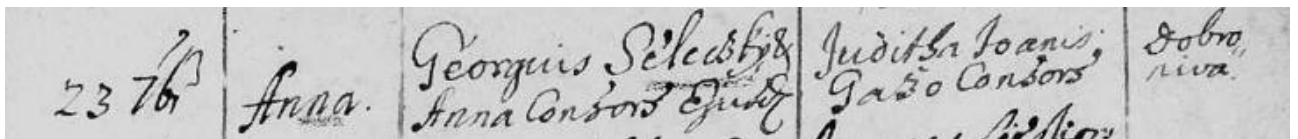 23 7br
Anna.
Georguis Selecsky &
Anna Consors Ejusd
Juditha Joanis
Gaso Consors
Dobro„
niva.